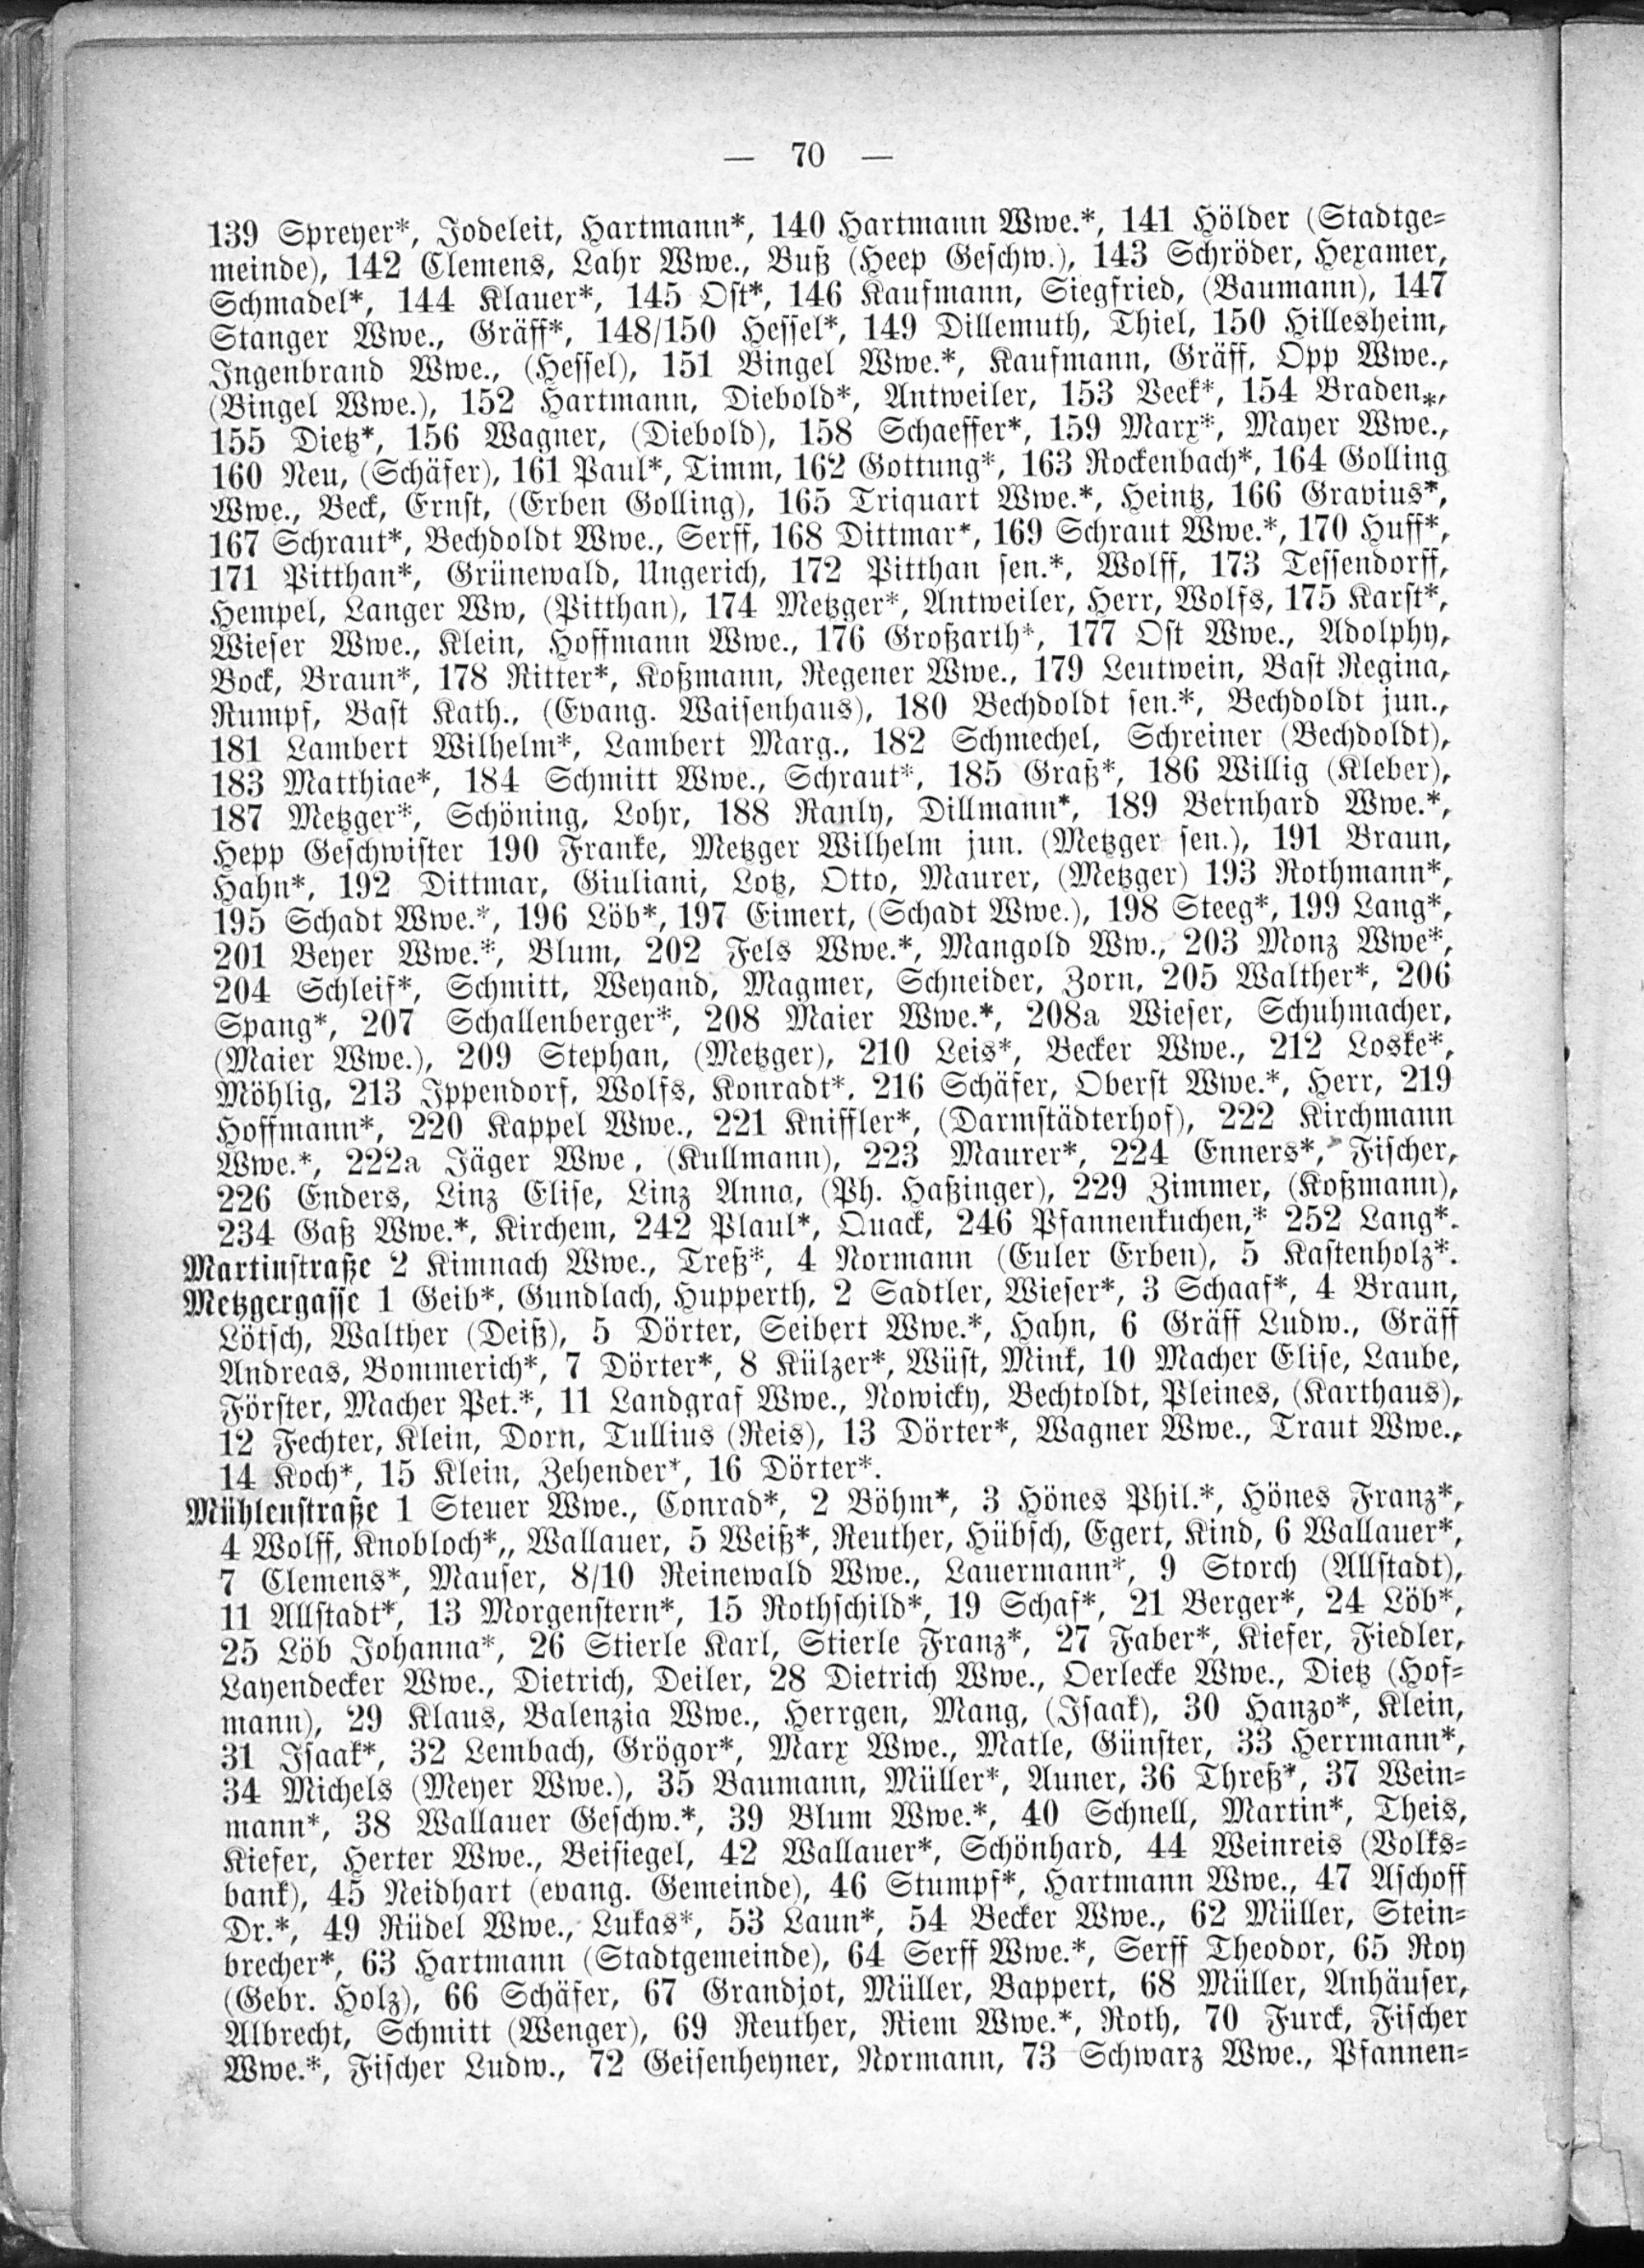 — 70 —
139 Spreyer*, Jodeleit, Hartmann*, 140 Hartmann Wwe.*, 141 Hölder (Stadtge-
meinde), 142 Clemens, Lahr Wwe., Buß (Heep Geschw.), 143 Schröder, Hexamer,
Schmadel*, 144 Klauer*, 145 Ost*, 146 Kaufmann, Siegfried, (Baumann), 147
Stanger Wwe., Gräff*, 148/150 Hessel*, 149 Dillemuth, Thiel, 150 Hillesheim,
Ingenbrand Wwe., (Hessel), 151 Bingel Wwe.*, Kaufmann, Gräff, Opp Wwe.,
(Bingel Wwe.), 152 Hartmann, Diebold*, Antweiler, 153 Beek*, 154 Braden*,
155 Dietz*, 156 Wagner, (Diebold), 158 Schaeffer*, 159 Marx*, Mayer Wwe.,
160 Neu, (Schäfer), 161 Paul*, Timm, 162 Gottung*, 163 Rockenbach*, 164 Golling
Wwe., Beck, Ernst, (Erben Golling), 165 Triquart Wwe.*, Heintz, 166 Gravius*,
167 Schraut*, Bechdoldt Wwe., Serff, 168 Dittmar*, 169 Schraut Wwe.*, 170 Huff*,
171 Pitthan*, Grünewald, Ungerich, 172 Pitthan sen.*, Wolff, 173 Tessendorff,
Hempel, Langer Ww, (Pitthan), 174 Metzger*, Antweiler, Herr, Wolfs, 175 Karst*,
Wieser Wwe., Klein, Hoffmann Wwe., 176 Großarth*, 177 Ost Wwe., Adolphy,
Bock, Braun*, 178 Ritter*, Koßmann, Regener Wwe., 179 Leutwein, Bast Regina,
Rumpf, Bast Kath., (Evang. Waisenhaus), 180 Bechdoldt sen.*, Bechdoldt jun.,
181 Lambert Wilhelm*, Lambert Marg., 182 Schmechel, Schreiner (Bechdoldt),
183 Matthiae*, 184 Schmitt Wwe., Schraut*, 185 Graß*, 186 Willig (Kleber),
187 Metzger*, Schöning, Lohr, 188 Ranly, Dillmann*, 189 Bernhard Wwe.*,
Hepp Geschwister 190 Franke, Metzger Wilhelm jun. (Metzger sen.), 191 Braun,
Hahn*, 192 Dittmar, Giuliani, Lotz, Otto, Maurer, (Metzger) 193 Rothmann*,
195 Schadt Wwe.*, 196 Löb*, 197 Eimert, (Schadt Wwe.), 198 Steeg*, 199 Lang*,
201 Beyer Wwe.*, Blum, 202 Fels Wwe.*, Mangold Ww., 203 Monz Wwe*,
204 Schleif*, Schmitt, Weyand, Magmer, Schneider, Zorn, 205 Walther*, 206
Spang*, 207 Schallenberger*, 208 Maier Wwe.*, 208a Wieser, Schuhmacher,
(Maier Wwe.), 209 Stephan, (Metzger), 210 Leis*, Becker Wwe., 212 Loske*,
Möhlig, 213 Ippendorf, Wolfs, Konradt*, 216 Schäfer, Oberst Wwe.*, Herr, 219
Hoffmann*, 220 Kappel Wwe., 221 Kniffler*, (Darmstädterhof), 222 Kirchmann
Wwe.*, 222a Jäger Wwe, (Kullmann), 223 Maurer*, 224 Enners*, Fischer,
226 Enders, Linz Elise, Linz Anna, (Ph. Haßinger), 229 Zimmer, (Koßmann),
234 Gaß Wwe.*, Kirchem, 242 Plaul*, Quack, 246 Pfannenkuchen,* 252 Lang*.
Martinstraße 2 Kimnach Wwe., Treß*, 4 Normann (Euler Erben), 5 Kastenholz*.
Metzgergasse 1 Geib*, Gundlach, Hupperth, 2 Sadtler, Wieser*, 3 Schaaf*, 4 Braun,
Lötsch, Walther (Deiß), 5 Dörter, Seibert Wwe.*, Hahn, 6 Gräff Ludw., Gräff
Andreas, Bommerich*, 7 Dörter*, 8 Külzer*, Wüst, Mink, 10 Macher Elise, Laube,
Förster, Macher Pet.*, 11 Landgraf Wwe., Nowicky, Bechtoldt, Pleines, (Karthaus),
12 Fechter, Klein, Dorn, Tullius (Reis), 13 Dörter*, Wagner Wwe., Traut Wwe.,
14 Koch*, 15 Klein, Zehender*, 16 Dörter*.
Mühlenstraße 1 Steuer Wwe., Conrad*, 2 Böhm*, 3 Hönes Phil.*, Hönes Franz*,
4 Wolff, Knobloch*,, Wallauer, 5 Weiß*, Reuther, Hübsch, Egert, Kind, 6 Wallauer*,
7 Clemens*, Mauser, 8/10 Reinewald Wwe., Lauermann*, 9 Storch (Allstadt),
11 Allstadt*, 13 Morgenstern*, 15 Rothschild*, 19 Schaf*, 21 Berger*, 24 Löb*,
25 Löb Johanna*, 26 Stierle Karl, Stierle Franz*, 27 Faber*, Kiefer, Fiedler,
Layendecker Wwe., Dietrich, Deiler, 28 Dietrich Wwe., Oerlecke Wwe., Dietz (Hof-
mann), 29 Klaus, Balenzia Wwe., Herrgen, Mang, (Isaak), 30 Hanzo*, Klein,
31 Isaak*, 32 Lembach, Grögor*, Marx Wwe., Matle, Günster, 33 Herrmann*,
34 Michels (Meyer Wwe.), 35 Baumann, Müller*, Auner, 36 Threß*, 37 Wein-
mann*, 38 Wallauer Geschw.*, 39 Blum Wwe.*, 40 Schnell, Martin*, Theis,
Kiefer, Herter Wwe., Beisiegel, 42 Wallauer*, Schönhard, 44 Weinreis (Volks-
bank), 45 Neidhart (evang. Gemeinde), 46 Stumpf*, Hartmann Wwe., 47 Aschoff
Dr.*, 49 Rüdel Wwe., Lukas*, 53 Laun*, 54 Becker Wwe., 62 Müller, Stein-
brecher*, 63 Hartmann (Stadtgemeinde), 64 Serff Wwe.*, Serff Theodor, 65 Roy
(Gebr. Holz), 66 Schäfer, 67 Grandjot, Müller, Bappert, 68 Müller, Anhäuser,
Albrecht, Schmitt (Wenger), 69 Reuther, Riem Wwe.*, Roth, 70 Furck, Fischer
Wwe.*, Fischer Ludw., 72 Geisenheyner, Normann, 73 Schwarz Wwe., Pfannen-